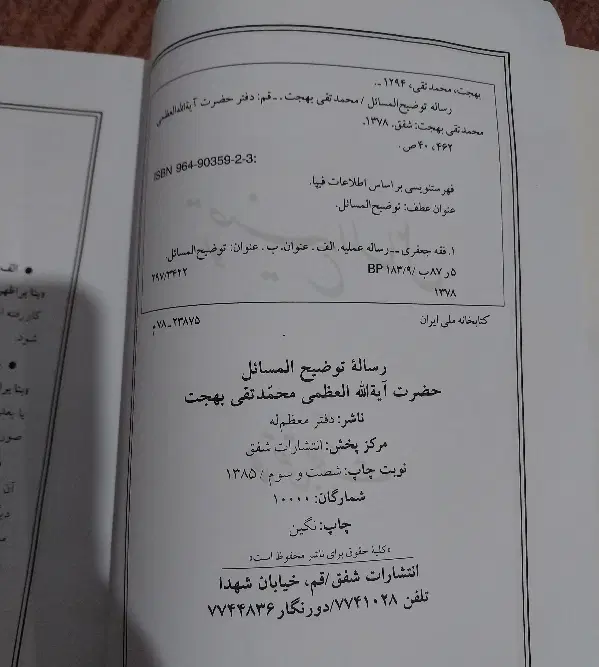 بهجت، محمدتقی، ۱۲۹۴ ـ.
رساله توضیح‌المسائل / محمدتقی بهجت. ـ قم: دفتر حضرت آیة‌الله‌العظمی
محمدتقی بهجت: شفق، ۱۳۷۸.
۴۶۲، ۴۰ ص.
ISBN 964-90359-2-3:
فهرستنویسی براساس اطلاعات فیپا.
عنوان عطف: توضیح‌المسائل.
۱. فقه جعفری ــ رساله عملیه. الف. عنوان. ب. عنوان: توضیح‌المسائل.
۵ر۸۷ب/ BP ۱۸۳/۹ ۲۹۷/۳۴۲۲
۱۳۷۸
کتابخانه ملی ایران ۲۳۸۷۵ـ۷۸م
رسالهٔ توضیح المسائل
حضرت آیة‌الله العظمی محمّدتقی بهجت
ناشر: دفتر معظم‌له
مرکز پخش: انتشارات شفق
نوبت چاپ: شصت و سوم / ۱۳۸۵
شمارگان: ۱۰۰۰۰
چاپ: نگین
«کلیهٔ حقوق برای ناشر محفوظ است»
انتشارات شفق/قم، خیابان شهدا
تلفن ۷۷۴۱۰۲۸/دورنگار ۷۷۴۴۸۳۶
● الف
شود.
●
یا بعد
صور
آن